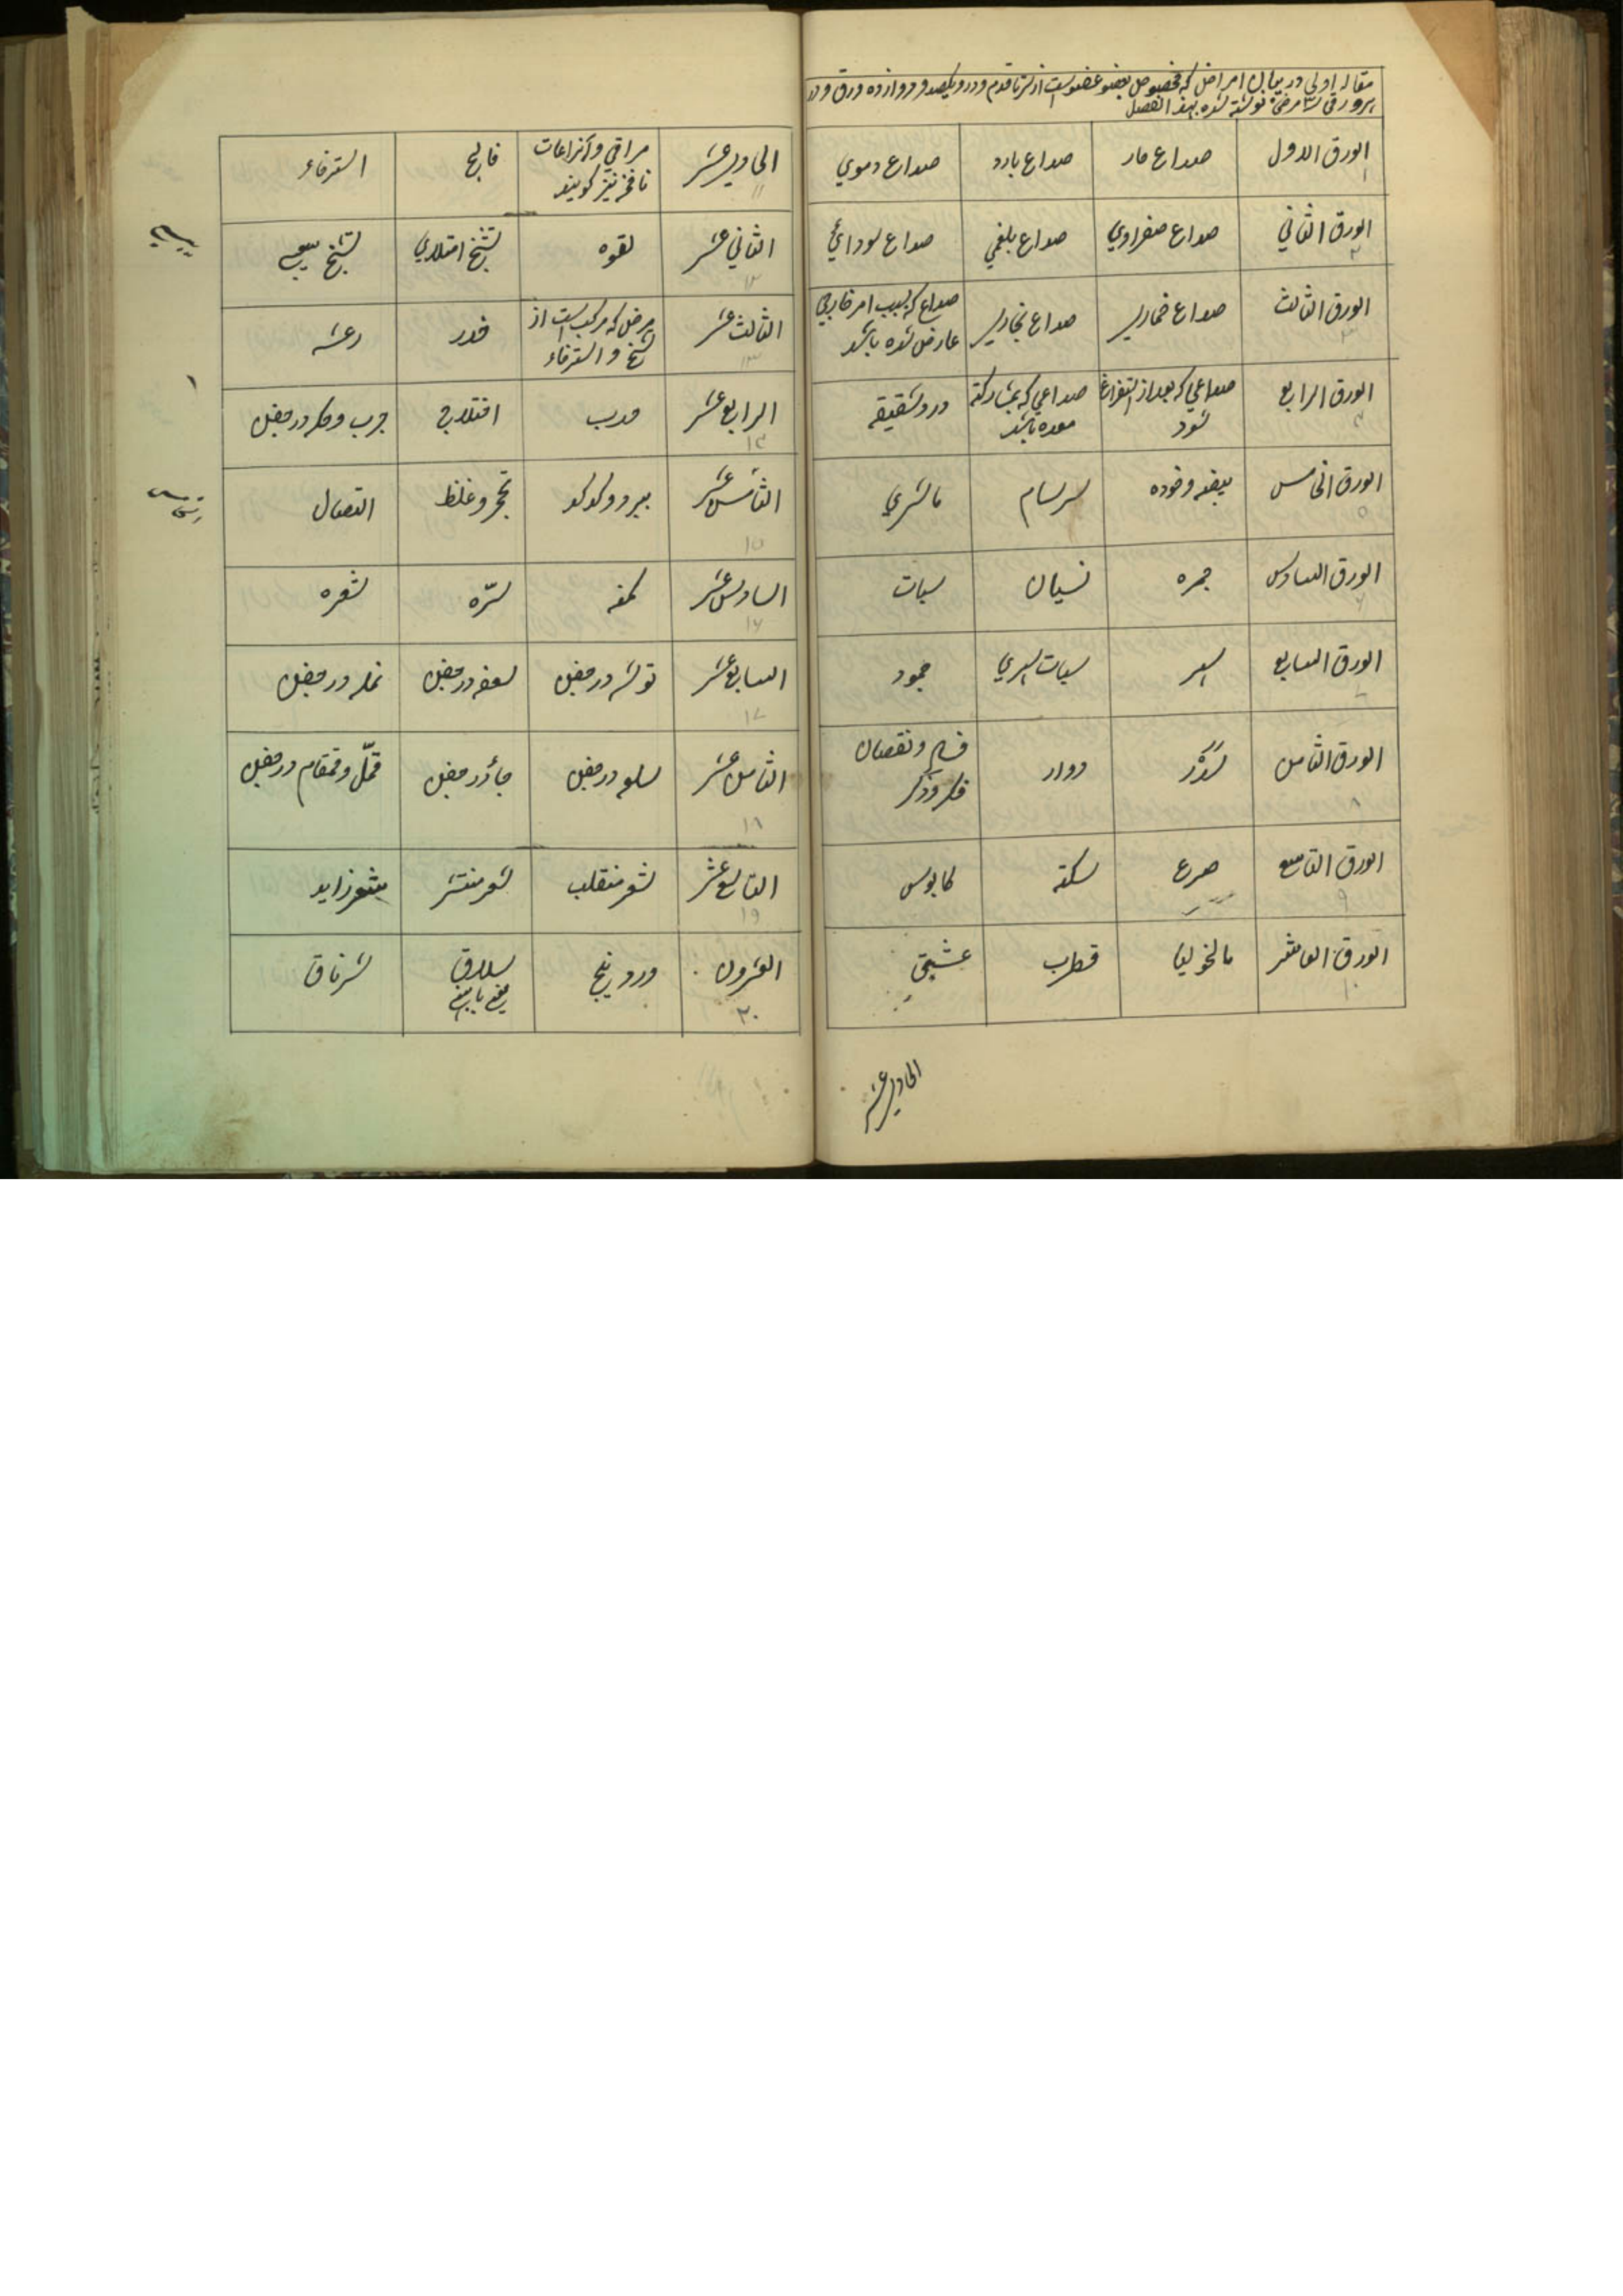 مقاله اولی در بیان امراض که مخصوص بعضو عضو است از سر تا قدم و در و یکصد و دوازده ورق و در
هر ورقی سه مرض نوشته شده بهذا التفصیل
الورق الاول صداع حار صداع بارد صداع دموي
۱
الورق الثاني صداع صفراوي صداع بلغمي صداع سودائي
۲
الورق الثالث صداع خماري صداع بخاري صداع که بسبب امر خارجي
عارض شده باشد
۳
الورق الرابع صداعي که بعد از استفراغ شود صداعي که بمشارکة معده باشد درد شقیقه
۴
الورق الخامس بیضه و خوده سرسام ماشري
۵
الورق السادس جمره نسیان سبات
۶
الورق السابع سهر سبات سهري جمود
الورق الثامن سَدَر دوار فساد و نقصان
فکر و ذکر
۸
الورق التاسع صرع سکته کابوس
۹
الورق العاشر مالنخولیا قطرب عشق
۱۰
الحادي عشر
الحادي عشر مراقي و آنرا علت
نافخه نیز گویند فالج استرخاء
۱۱
الثاني عشر لقوه تشنج امتلاي تشنج یبسي
۱۲
الثالث عشر مرض که مرکب است از
تشنج و استرخاء خدر رعشه
۱۳
الرابع عشر حدب اختلاج جرب و حکه در جفن
۱۴
الخامس عشر برد و کدکد تحجر و غلظ التصاق
۱۵
السادس عشر کمنه شتره شعره
۱۶
السابع عشر توثه در جفن سعفه در جفن نمله در جفن
۱۷
الثامن عشر سلعه در جفن جسأ در جفن قمّل و قمقام در جفن
۱۸
التاسع عشر شعر منقلب شعر منتشر شعر زاید
۱۹
العشرون وردینج سلاق شرناق
۲۰